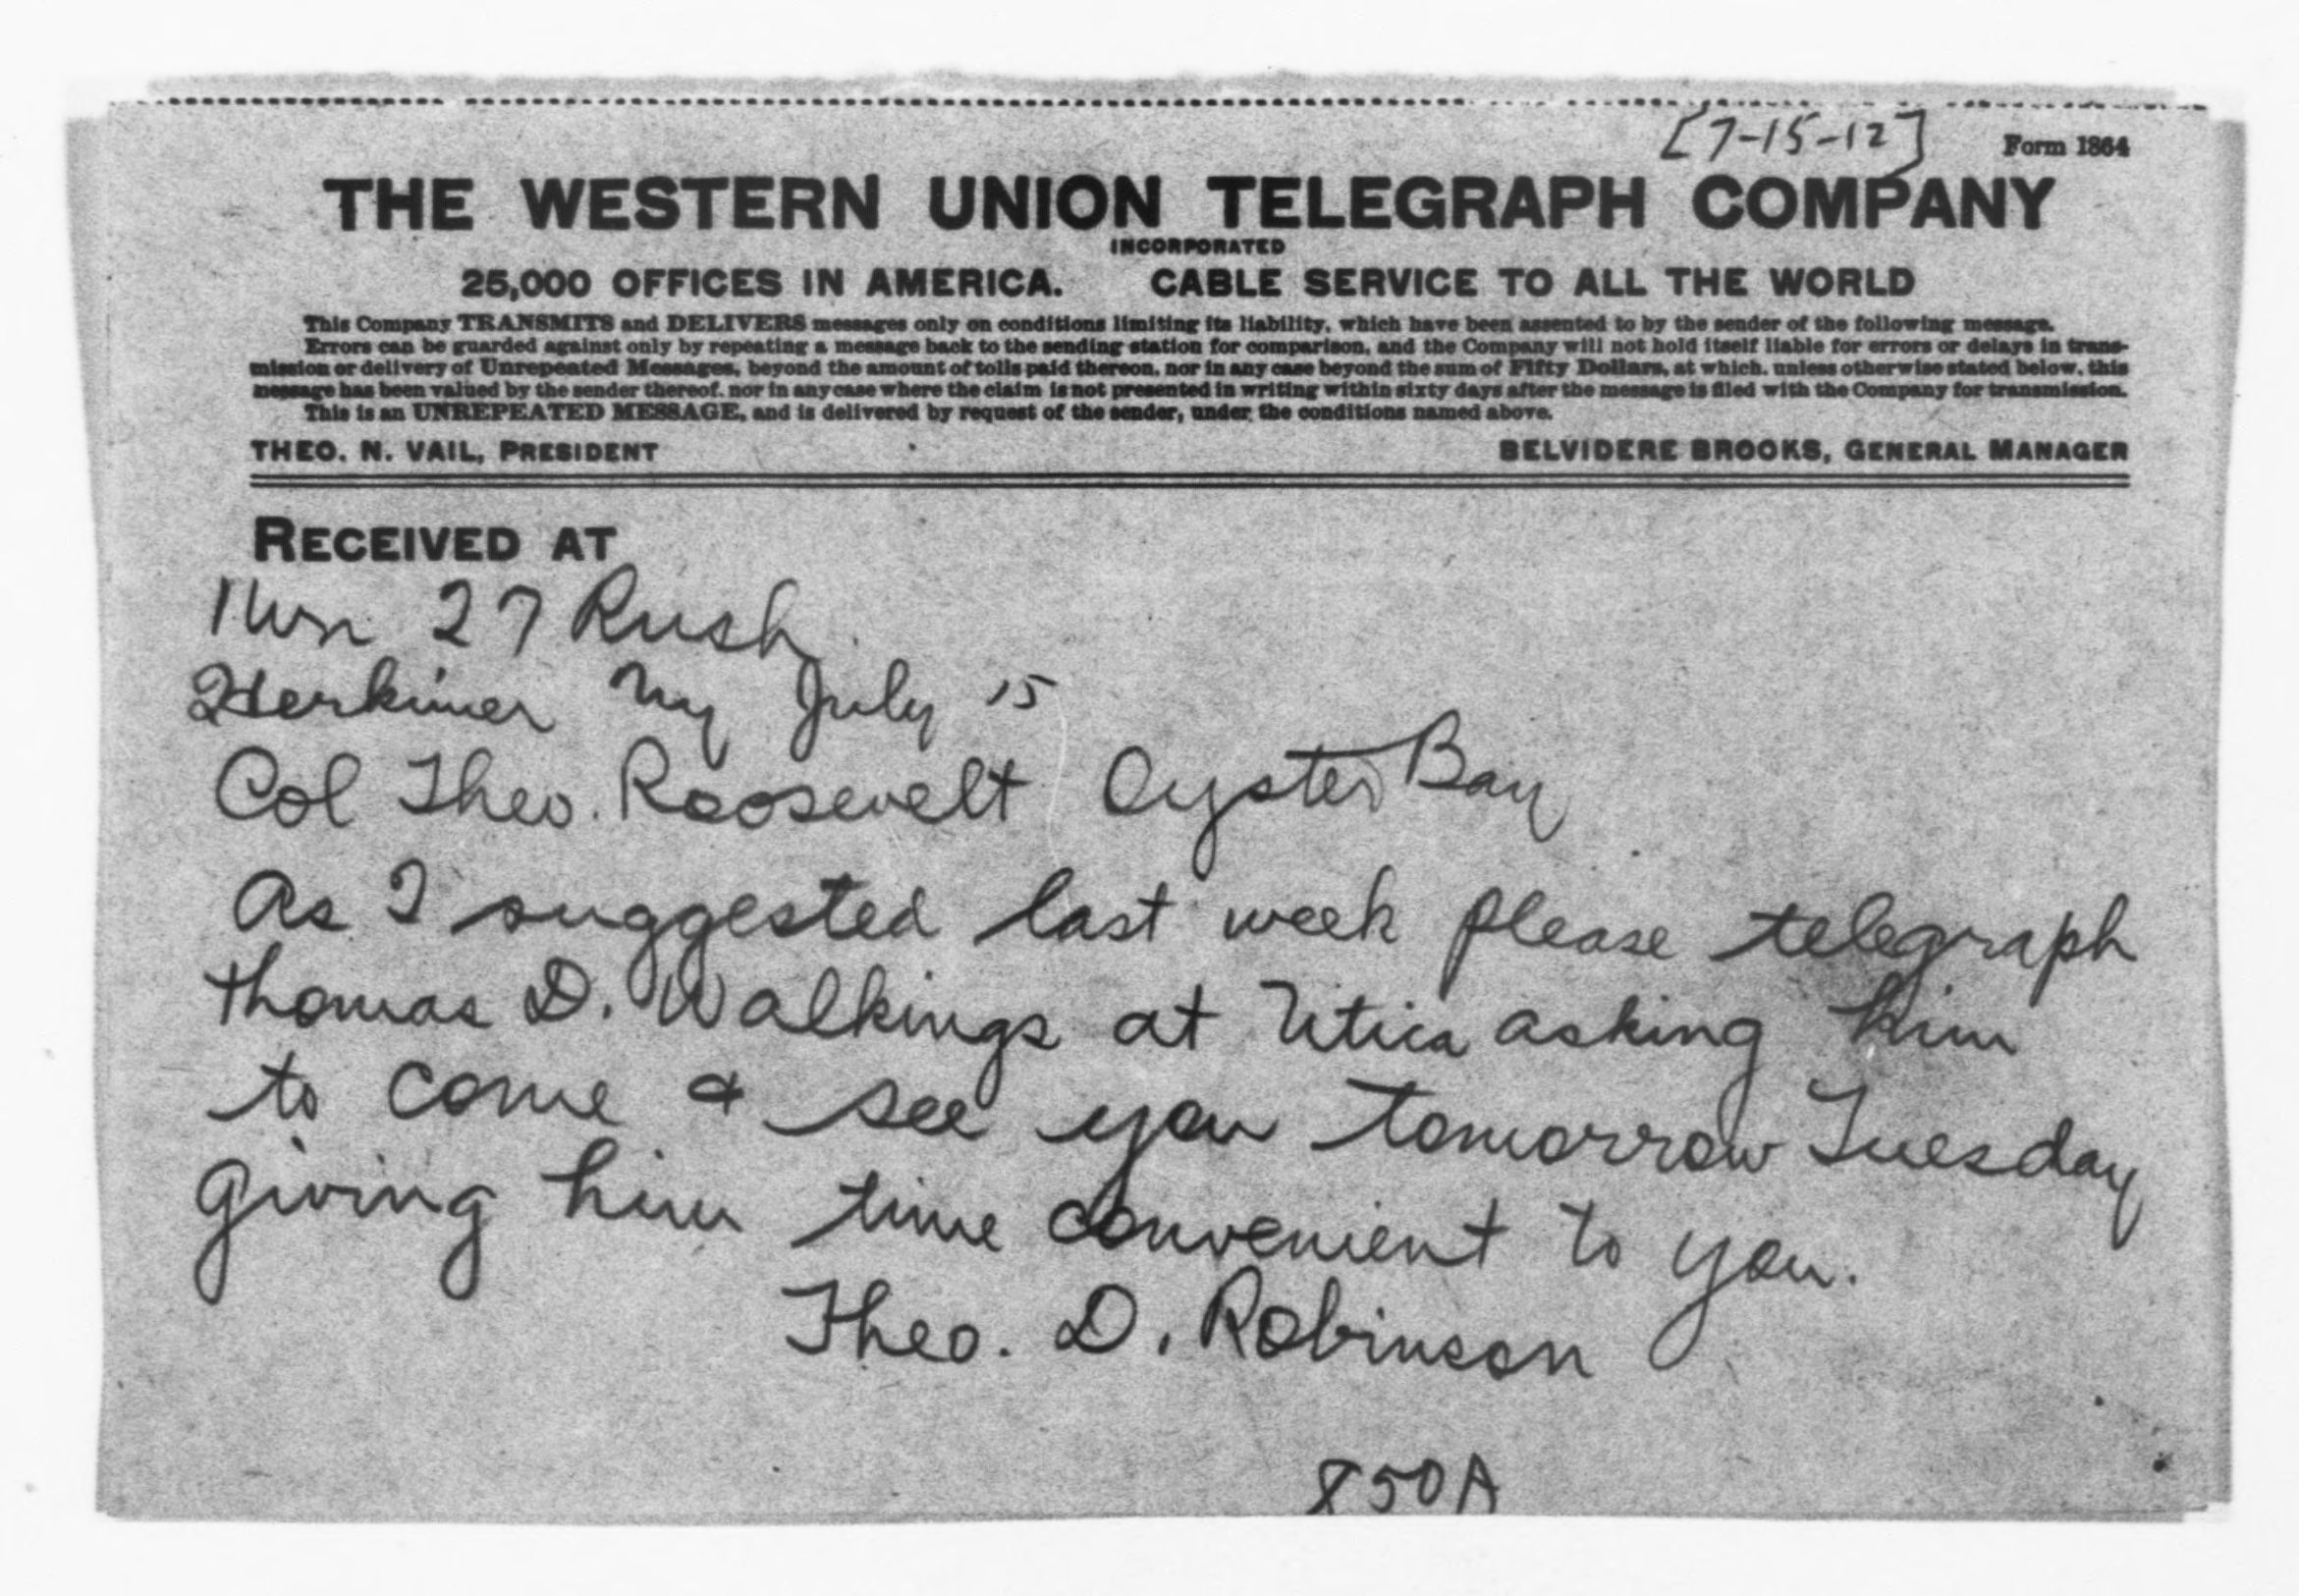 [7-15-12] Form 1864
THE WESTERN UNION TELEGRAPH COMPANY
INCORPORATED
25,000 OFFICES IN AMERICA. CABLE SERVICE TO ALL THE WORLD
This Company TRANSMITS and DELIVERS messages only on conditions limiting its liability, which have been assented to by the sender of the following message.
Errors can be guarded against only by repeating a message back to the sending station for comparison, and the Company will not hold itself liable for errors or delays in trans-
mission or delivery of Unrepeated Messages, beyond the amount of tolls paid thereon, nor in any case beyond the sum of Fifty Dollars, at which, unless otherwise stated below, this
message has been valued by the sender thereof, nor in any case where the claim is not presented in writing within sixty days after the message is filed with the Company for transmission.
This is an UNREPEATED MESSAGE, and is delivered by request of the sender, under the conditions named above.
THEO. N. VAIL, PRESIDENT BELVIDERE BROOKS, GENERAL MANAGER
RECEIVED AT
27 Rush
Herkimer Ny July 15
Col Theo. Roosevelt Oyster Bay
As I suggested last week please telegraph
thomas D. Walkings at Utica asking him
to come & see you tomorrow Tuesday
giving him time convenient to you.
Theo. D. Robinson
850A